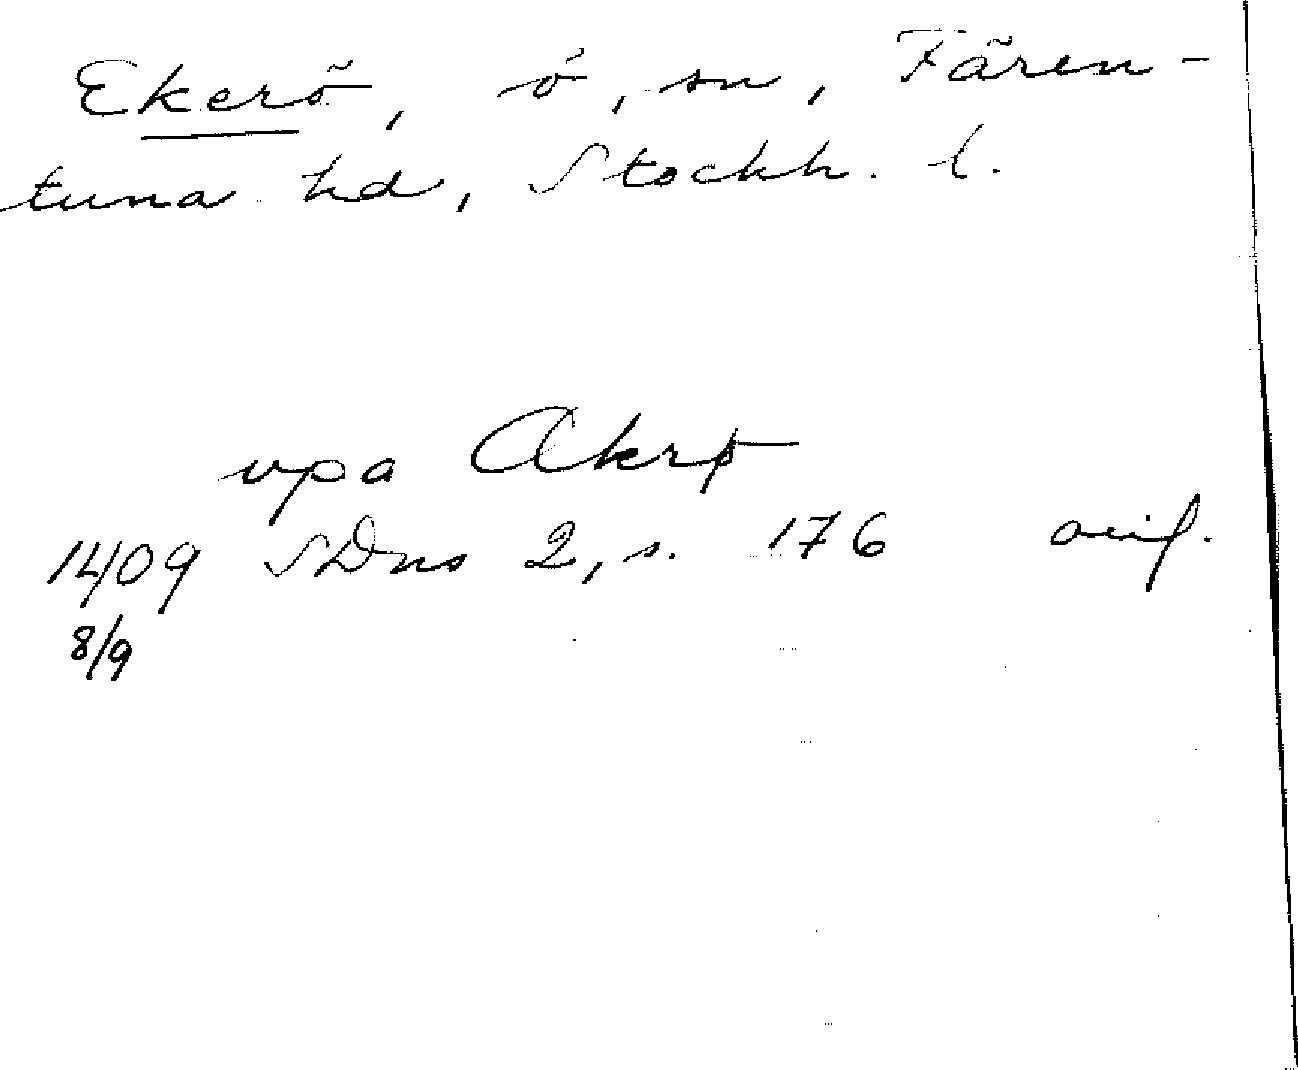 Ekerö, ö, sn, Fären-
tuna hd, Stockh. l.
vpa Akrø
1409 SDns 2, s. 176 orig.
8/9